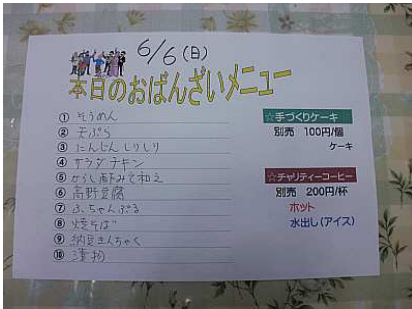 6/6(日)
本日のおばんざいメニュー
① そうめん
② 天ぷら
③ にんじんしりしり
④ サラダチキン
⑤ からし酢みそ和え
⑥ 高野豆腐
⑦ ふちゃんぷる
⑧ 焼そば
⑨ 納豆きんちゃく
⑩ 漬物
☆手づくりケーキ
別売 100円/個
ケーキ
☆チャリティーコーヒー
別売 200円/杯
ホット
水出し(アイス)